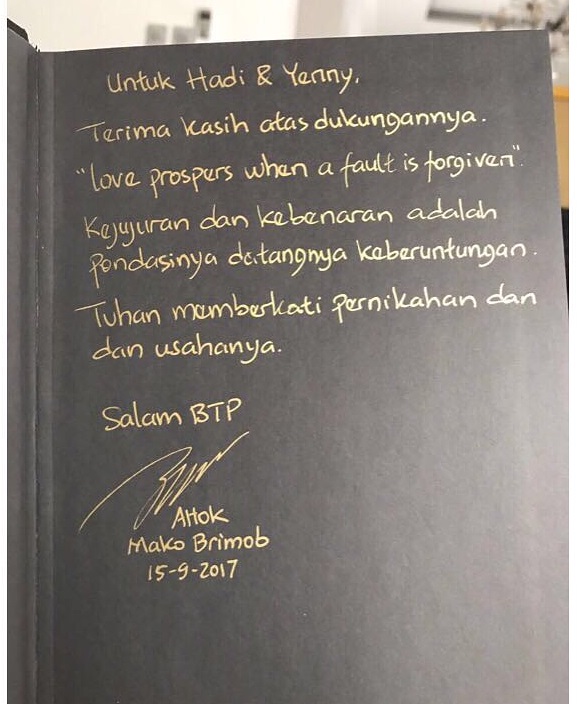 Untuk Hadi & Yenny,
Terima kasih atas dukungannya.
"love prospers when a fault is forgiven".
Kejujuran dan kebenaran adalah
pondasinya datangnya keberuntungan.
Tuhan memberkati pernikahan dan
dan usahanya.
Salam BTP
AHok
Mako Brimob
15-9-2017